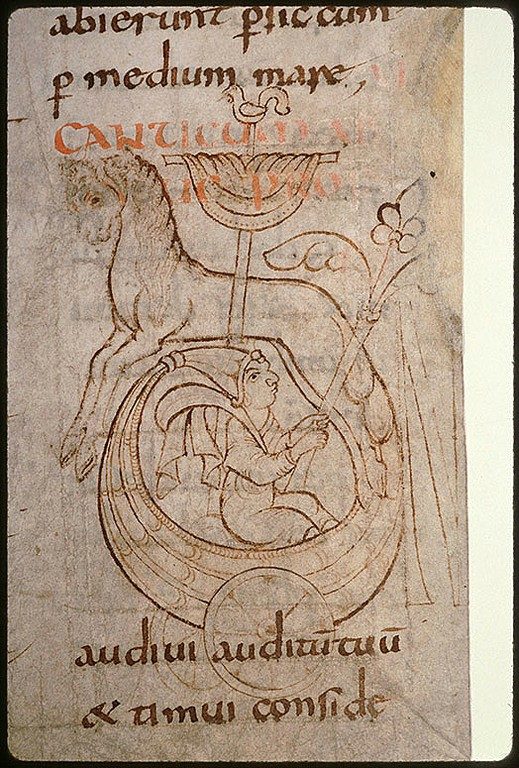 abierunt ꝑsiccum
ꝑ medium mare,
CANTICUM
PRO
audiui auditūtuū
& timui conside